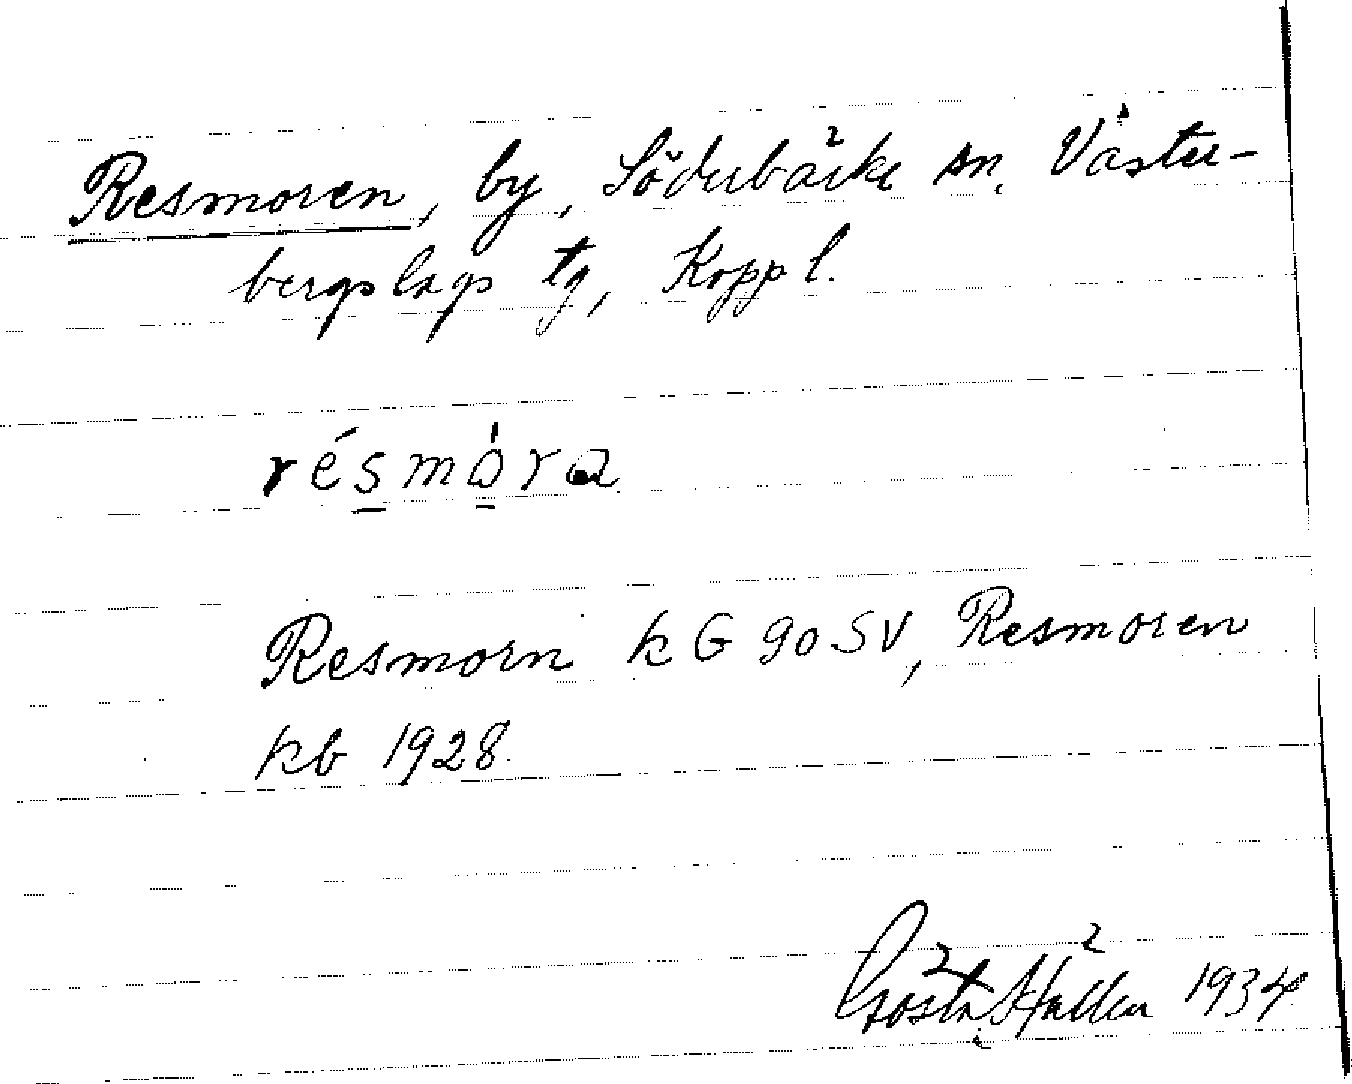 Resmoren, by, Söderbärke sn. Väster-
bergslags tg, Kopp l.
résmåra
Resmorn k G 90 SV, Resmoren
kb 1928.
Gösta Hallen 1934